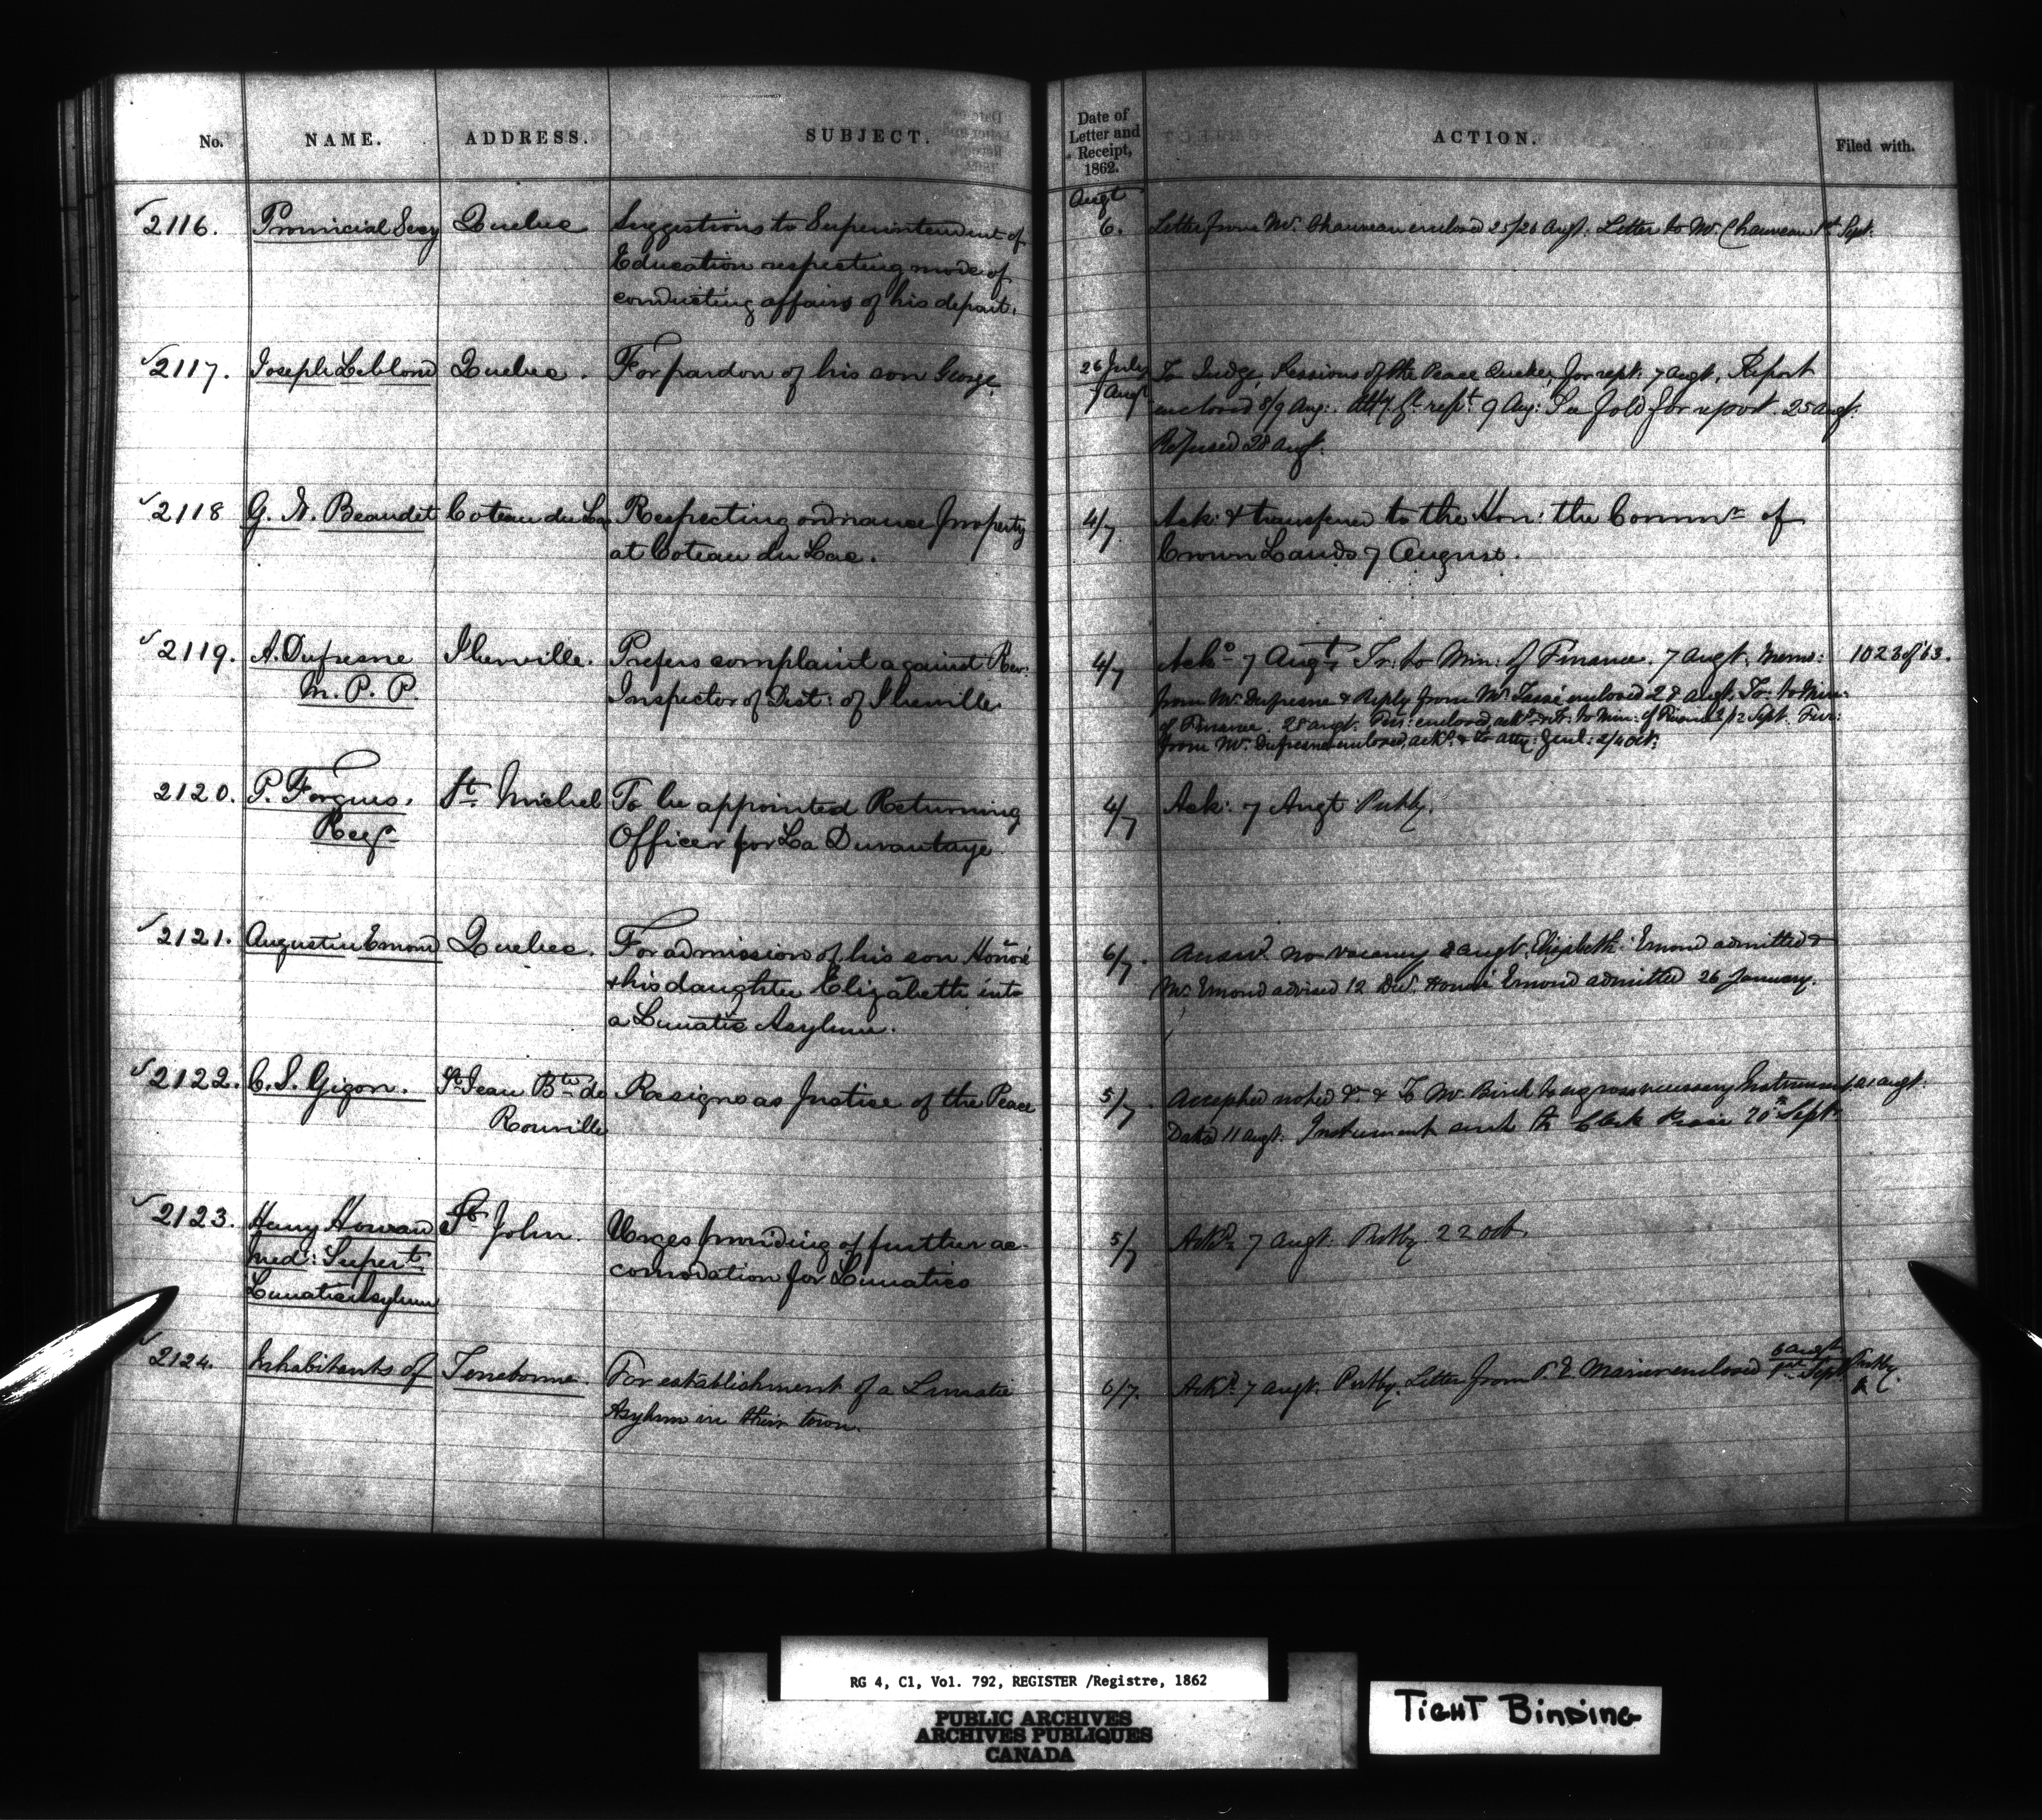 No. NAME. ADDRESS. SUBJECT. Date of Letter and Receipt, 1862. ACTION. Filed with.
Augt
2116. Provincial Secy Quebec Suggestions to Superintendent of 6. Letter from Mr. Chauveau enclosed 25/26 Augt. Letter to Mr. Chauveau 1st Sept.
Education respecting mode of
conducting affairs of his depart.
2117. Joseph Leblond Quebec. For pardon of his son George. 26 July To Judge, Sessions of the Peace Quebec, for rept. 7 Augt. Report
7 Augt enclosed 8/9 Aug: Atty. Gl. rept. 9 Aug: See fold for report. 25 augt.
Refused 28 augt.
2118 G. N. Beaudet Coteau du Lac Respecting ordnance property 4/7. Ack: & transferred to the Hon: the Commr. of
at Coteau du Lac. Crown Lands 7 August.
2119. A. Dufresne Iberville. Prefers complaint against Rev: 4/7 Ackd. 7 Augt, Tr: to Min: of Finance. 7 augt. Memo: 1023 of '63.
M. P. P. Inspector of Dist: of Iberville from Mr. Dufresne & Reply from Mr. enclosed 28 augt. Tr: to Min:
of Finance. 28 augt. Fur: enclosed, ackd. & tr: to Min: of Finance 2/12 Sept. Fur:
from Mr. Dufresne enclosed, ackd. & to atty: Genl: 2/4 Oct:
2120. P. Forgues. St. Michel To be appointed Returning 4/7 Ack: 7 Augt Putby.
Officer for La Durantaye.
2121. Augustin Emond Quebec. For admission of his son Honoré 6/7. Answd. no vacancy 8 augt. Elizabeth Emond admitted &
& his daughter Elizabeth into Mr. Emond advised 12 Dec. Honoré Emond admitted 26 January.
a Lunatic Asylum.
2122. C. S. Gigon. St. Jean Bte. de Resigns as Justice of the Peace 5/7. Accepted noted & To Mr. Birch to engross necessary Instrument, 21 augt.
Rouville Dated 11 augt. Instrument sent to Clerk Peace 20th Sept.
2123. Henry Howard St. John. Urges providing of further ac- 5/7 Ackd. 7 augt. Putby 22 Oct.
Med: Supert. comodation for Lunatics
Lunatic Asylum
2124. Inhabitants of Terrebonne. For establishment of a Lunatic 6/7. Ackd. 7 augt. Putby. Letter from enclosed 6 augt 1st Sept Putby.
Asylum in their town.
RG 4, C1, Vol. 792, REGISTER /Registre, 1862
PUBLIC ARCHIVES
ARCHIVES PUBLIQUES
CANADA
TIGHT BINDING